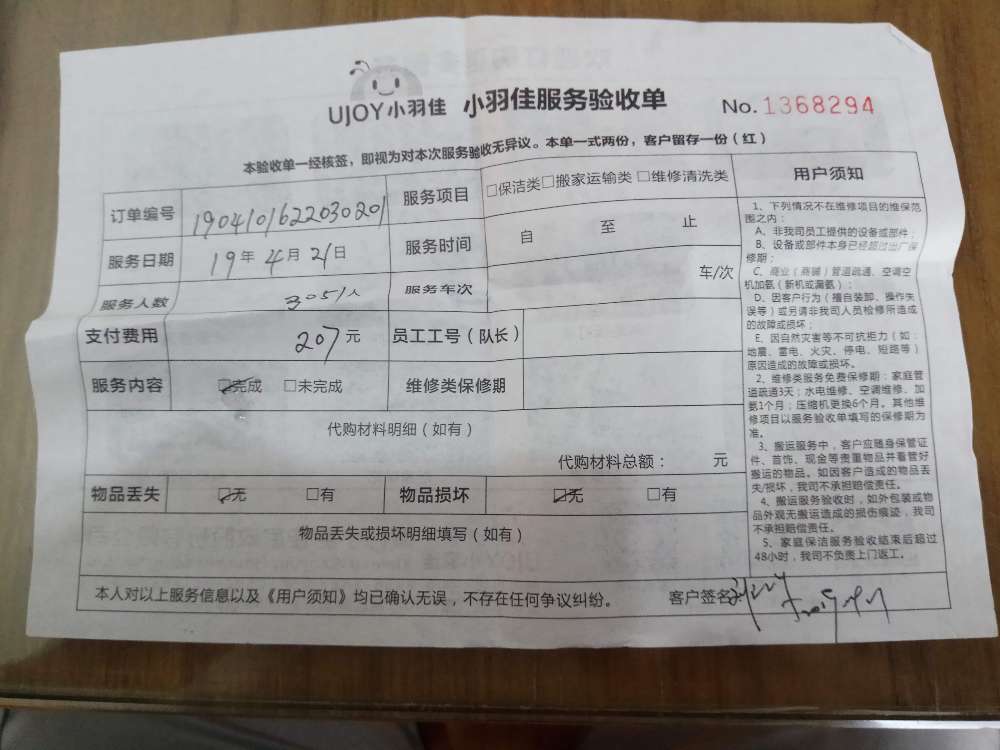 UJOY小羽佳 小羽佳服务验收单 No.1368294
本验收单一经核签，即视为对本次服务验收无异议。本单一式两份，客户留存一份（红）
订单编号 1904101622030201 服务项目 □保洁类□搬家运输类□维修清洗类
服务日期 19年4月21日 服务时间 自 至 止
服务人数 3051人 服务车次 车/次
支付费用 207元 员工工号（队长）
服务内容 ☑完成 □未完成 维修类保修期
代购材料明细（如有）
代购材料总额： 元
物品丢失 ☑无 □有 物品损坏 ☑无 □有
物品丢失或损坏明细填写（如有）
本人对以上服务信息以及《用户须知》均已确认无误，不存在任何争议纠纷。 客户签名：
用户须知
1、下列情况不在维修项目的维保范
围之内：
A、非我司员工提供的设备或部件；
B、设备或部件本身已经超过出厂保
修期；
C、商业（商铺）管道疏通、空调空
机加氨（新机或漏氨）；
D、因客户行为（擅自装卸、操作失
误等）或另请非我司人员检修所造成
的故障或损坏；
E、因自然灾害等不可抗拒力（如：
地震、雷电、火灾、停电、短路等）
原因造成的故障或损坏。
2、维修类服务免费保修期：家庭管
道疏通3天；水电维修、空调维修、加
氨1个月；压缩机更换6个月。其他维
修项目以服务验收单填写的保修期为
准。
3、搬运服务中，客户应随身保管证
件、首饰、现金等贵重物品并看管好
搬运的物品。如因客户造成的物品丢
失/损坏，我司不承担赔偿责任。
4、搬运服务验收时，如外包装或物
品外观无搬运造成的损伤痕迹，我司
不承担赔偿责任。
5、家庭保洁服务验收结束后超过
48小时，我司不负责上门返工。